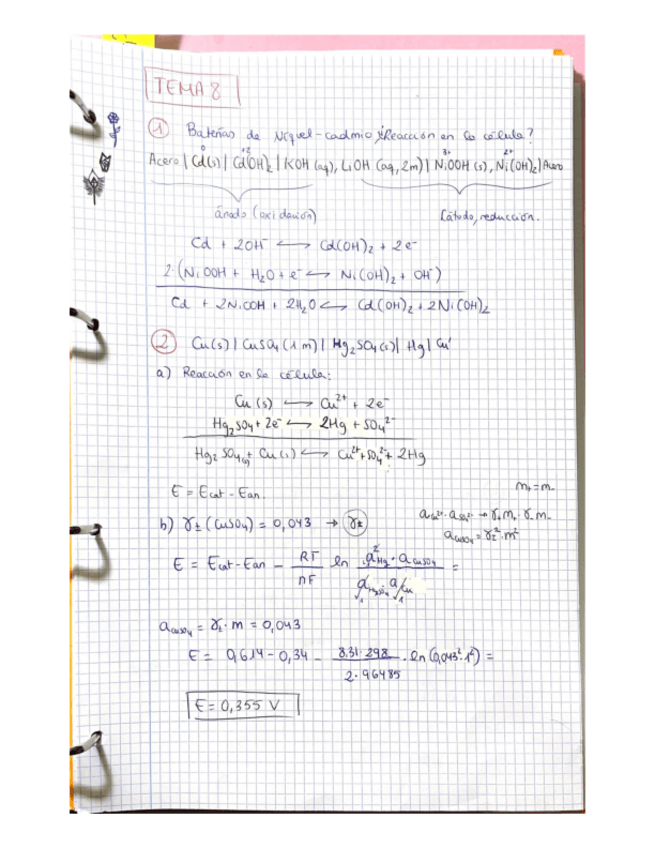 TEMA 8
① Baterías de Níquel-cadmio ¿Reacción en la célula?
0 +2 3+ 2+
Acero | Cd(s) | Cd(OH)₂ | KOH (aq), LiOH (aq, 2m) | NiOOH (s), Ni(OH)₂ | Acero
ánodo (oxidación) Cátodo, reducción.
Cd + 2OH⁻ ⟷ Cd(OH)₂ + 2e⁻
2·(NiOOH + H₂O + e⁻ ⟷ Ni(OH)₂ + OH⁻)
Cd + 2NiOOH + 2H₂O ⟷ Cd(OH)₂ + 2Ni(OH)₂
② Cu(s) | CuSO₄ (1 m) | Hg₂SO₄(s) | Hg | Cu'
a) Reacción en la célula:
Cu (s) ⟷ Cu²⁺ + 2e⁻
Hg₂SO₄ + 2e⁻ ⟷ 2Hg + SO₄²⁻
Hg₂SO₄(s) + Cu(s) ⟷ Cu²⁺ + SO₄²⁻ + 2Hg
E = Ecat - Ean
m₊ = m₋
b) γ± (CuSO₄) = 0,043 → γ±
a Cu²⁺ · a SO₄²⁻ → γ₊m₊ · γ₋m₋
a CuSO₄ = γ±² · m²
E = Ecat - Ean - RT/nF ln a²Hg · a CuSO₄ / a Hg₂SO₄ · a Cu =
1 1
a CuSO₄ = γ± · m = 0,043
E = 0,614 - 0,34 - 8.31·298 / 2·96485 · ln (0,043²·1²) =
E = 0,355 V